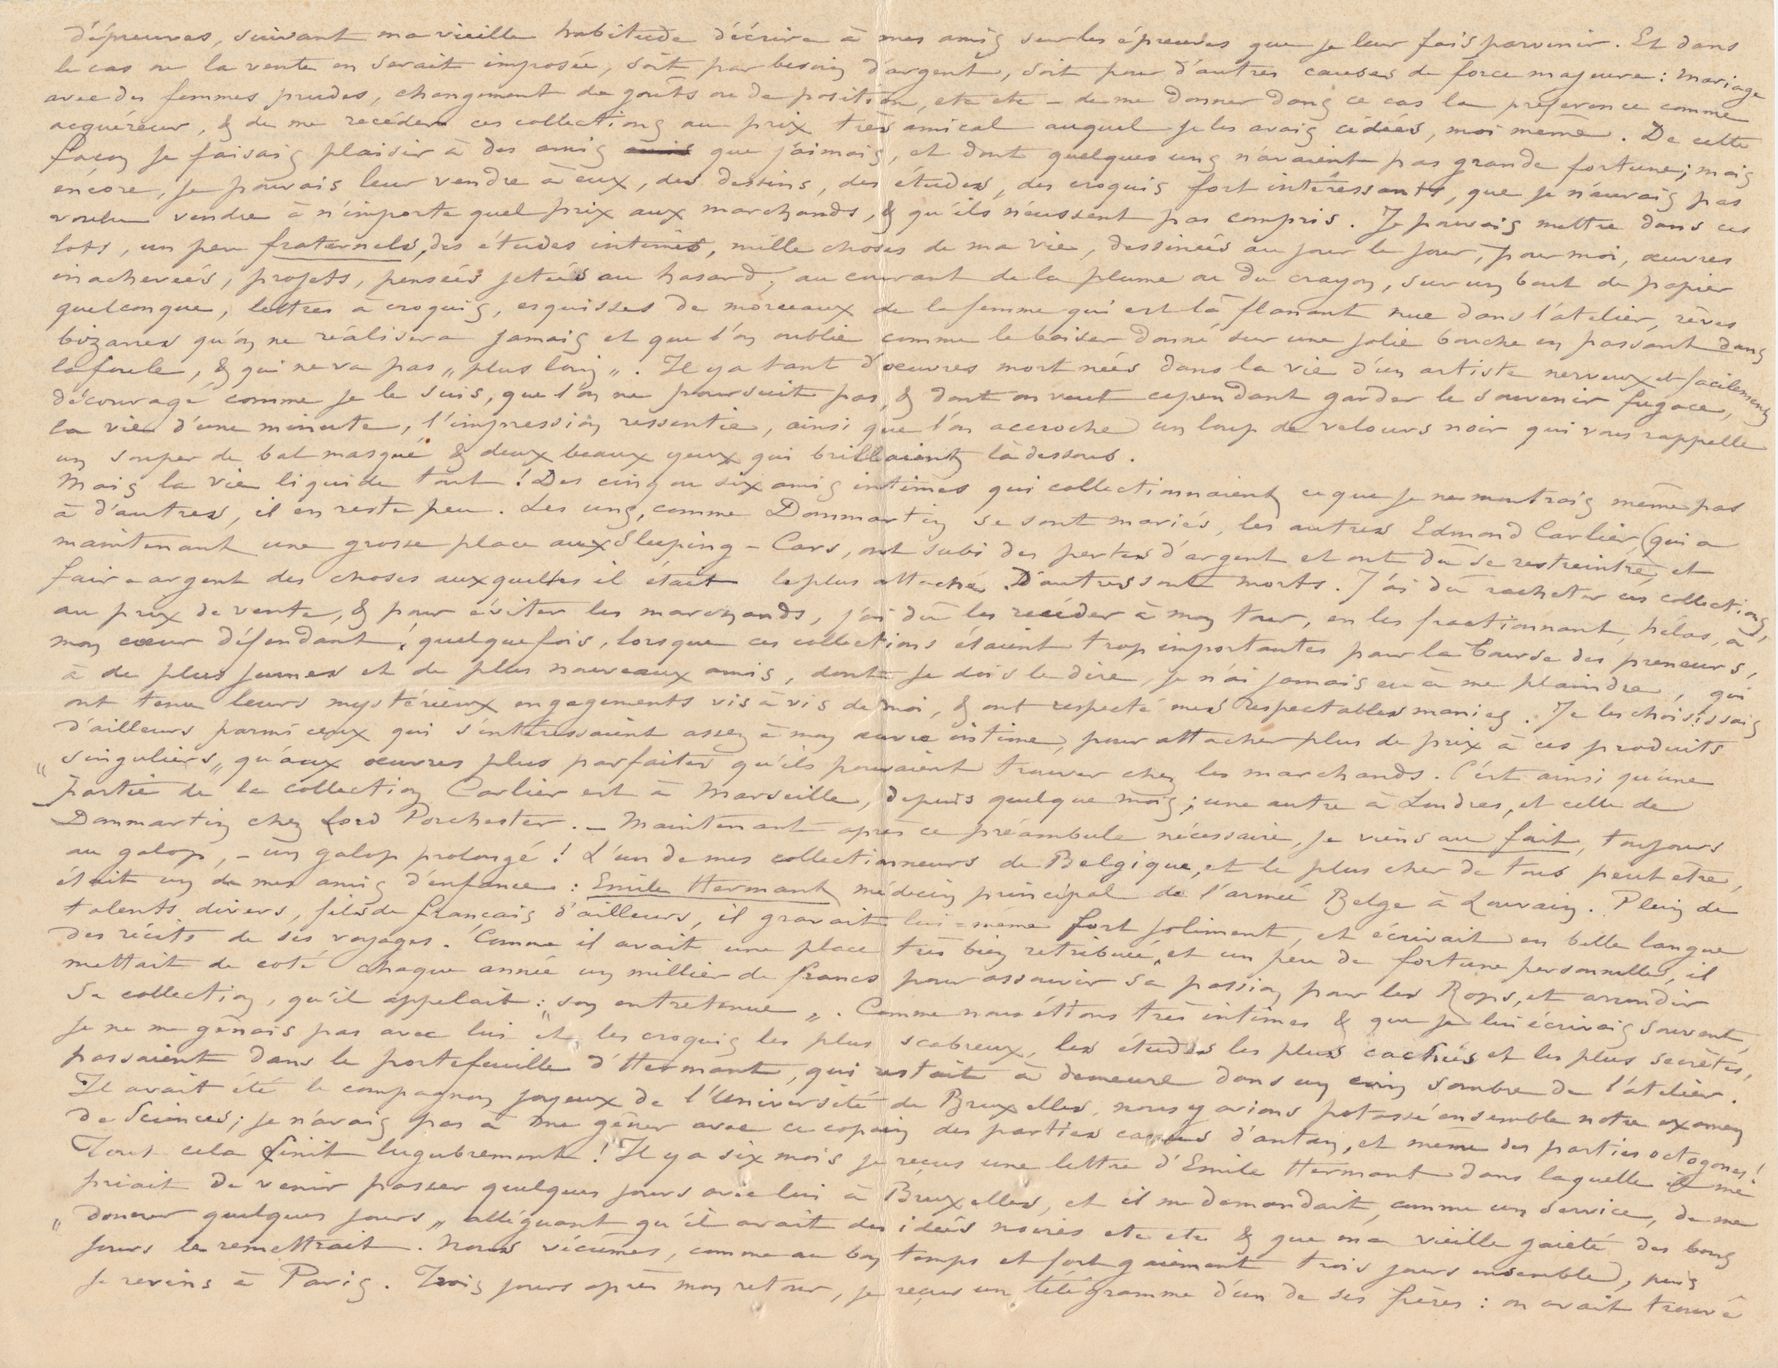 d'épreuves, suivant ma vieille habitude d'écrire à mes amis sur les épreuves que je leur fais parvenir. Et dans
le cas où la vente en serait imposée, soit par besoin d'argent, soit pour d'autres causes de force majeure : mariage
avec des femmes prudes, changement de goûts ou de position, etc etc – de me donner dans ce cas la préférence comme
acquéreur, & de me recéder ces collections au prix très amical auquel je les avais cédées, moi même. De cette
façon je faisais plaisir à des amis que j'aimais, et dont quelques uns n'avaient pas grande fortune; mais
encore, je pouvais leur vendre à eux, des dessins, des études, des croquis fort intéressants, que je n'aurais pas
voulu vendre à n'importe quel prix aux marchands, & qu'ils n'eussent pas compris. Je pouvais mettre dans ces
lots, un peu fraternels, des études intimes, mille choses de ma vie, dessinées au jour le jour, pour moi, œuvres
inachevées, projets, pensées jetées au hasard, au courant de la plume ou du crayon, sur un bout de papier
quelconque, lettres à croquis, esquisses de morceaux de la femme qui est là flanant nue dans l'atelier, rêves
bizarres qu'on ne réalisera jamais et que l'on oublie comme le baiser donné sur une jolie bouche en passant dans
la foule, & qui ne va pas „plus loin". Il y a tant d'œuvres mort nées dans la vie d'un artiste nerveux et facilement
découragé comme je le suis, que l'on ne poursuit pas, & dont on veut cependant garder le souvenir fugace,
la vie d'une minute, l'impression ressentie, ainsi que l'on accroche un loup de velours noir qui vous rappelle
un souper de bal masqué & deux beaux yeux qui brillaient là dessous.
Mais la vie liquide tout ! Des cinq ou six amis intimes qui collectionnaient ce que je ne montrais même pas
à d'autres, il en reste peu. Les uns, comme Dommartin se sont mariés, les autres Edmond Carlier (qui a
maintenant une grosse place aux Sleeping-Cars, ont subi des pertes d'argent et ont dû se restreintre, et
faire argent des choses auxquelles il était le plus attaché. D'autres sont morts. J'ai dû racheter ces collections,
au prix de vente, & pour éviter les marchands, j'ai dû les recéder à mon tour, en les fractionnant, hélas, à
mon cœur défendant, quelquefois, lorsque ces collections étaient trop importantes pour la bourse des preneurs,
à de plus jeunes et de plus nouveaux amis, dont je dois le dire, je n'ai jamais eu à me plaindre, qui
ont tenu leurs mystérieux engagements vis à vis de moi, & ont respecté mes respectables manies. Je les choisissais
d'ailleurs parmi ceux qui s'intéressaient assez à mon œuvre intime, pour attacher plus de prix à ces produits
„singuliers„ qu'aux œuvres plus parfaites qu'ils pouvaient trouver chez les marchands. C'est ainsi qu'une
partie de la collection Carlier est à Marseille, depuis quelque mois; une autre à Londres, et celle de
Dommartin chez Lord Porchester. – Maintenant après ce préambule nécessaire, je viens au fait, toujours
au galop, – un galop prolongé ! L'un de mes collectionneurs de Belgique, et le plus cher de tous peut etre,
était un de mes amis d'enfance : Emile Hermant médecin principal de l'armée Belge à Louvain. Plein de
talents divers, fils de français d'ailleurs, il gravait lui-même fort joliment, et écrivait en belle langue
des récits de ses voyages. Comme il avait une place très bien retribuée, et un peu de fortune personnelle, il
mettait de coté chaque année un millier de francs pour assouvir sa passion pour les Rops, et arrondir
sa collection, qu'il appelait : „son entretenue„. Comme nous étions très intimes & que je lui écrivais souvent,
je ne me gênais pas avec lui et les croquis les plus scabreux, les études les plus cachés et les plus secrètes,
passaient dans le portefeuille d'Hermant, qui restait à demeure dans un coin sombre de l'atelier.
Il avait été le compagnon joyeux de l'Université de Bruxelles, nous y avions potassé ensemble notre examen
de Sciences; je n'avais pas à me gêner avec ce copain des parties carrées d'antan, et même des parties octogones !
Tout cela finit lugubrement ! Il y a six mois je reçus une lettre d'Emile Hermant dans laquelle il me
priait de venir passer quelques jours avec lui à Bruxelles, et il me demandait, comme un service, de me
„donner quelques jours„ alléguant qu'il avait des idées noires etc etc & que ma vieille gaieté des bons
jours le remettrait. Nous vécumes, comme au bon temps et fort gaiement trois jours ensemble, puis
je revins à Paris. Trois jours après mon retour, je reçus un télégramme d'un de ses frères : on avait trouvé